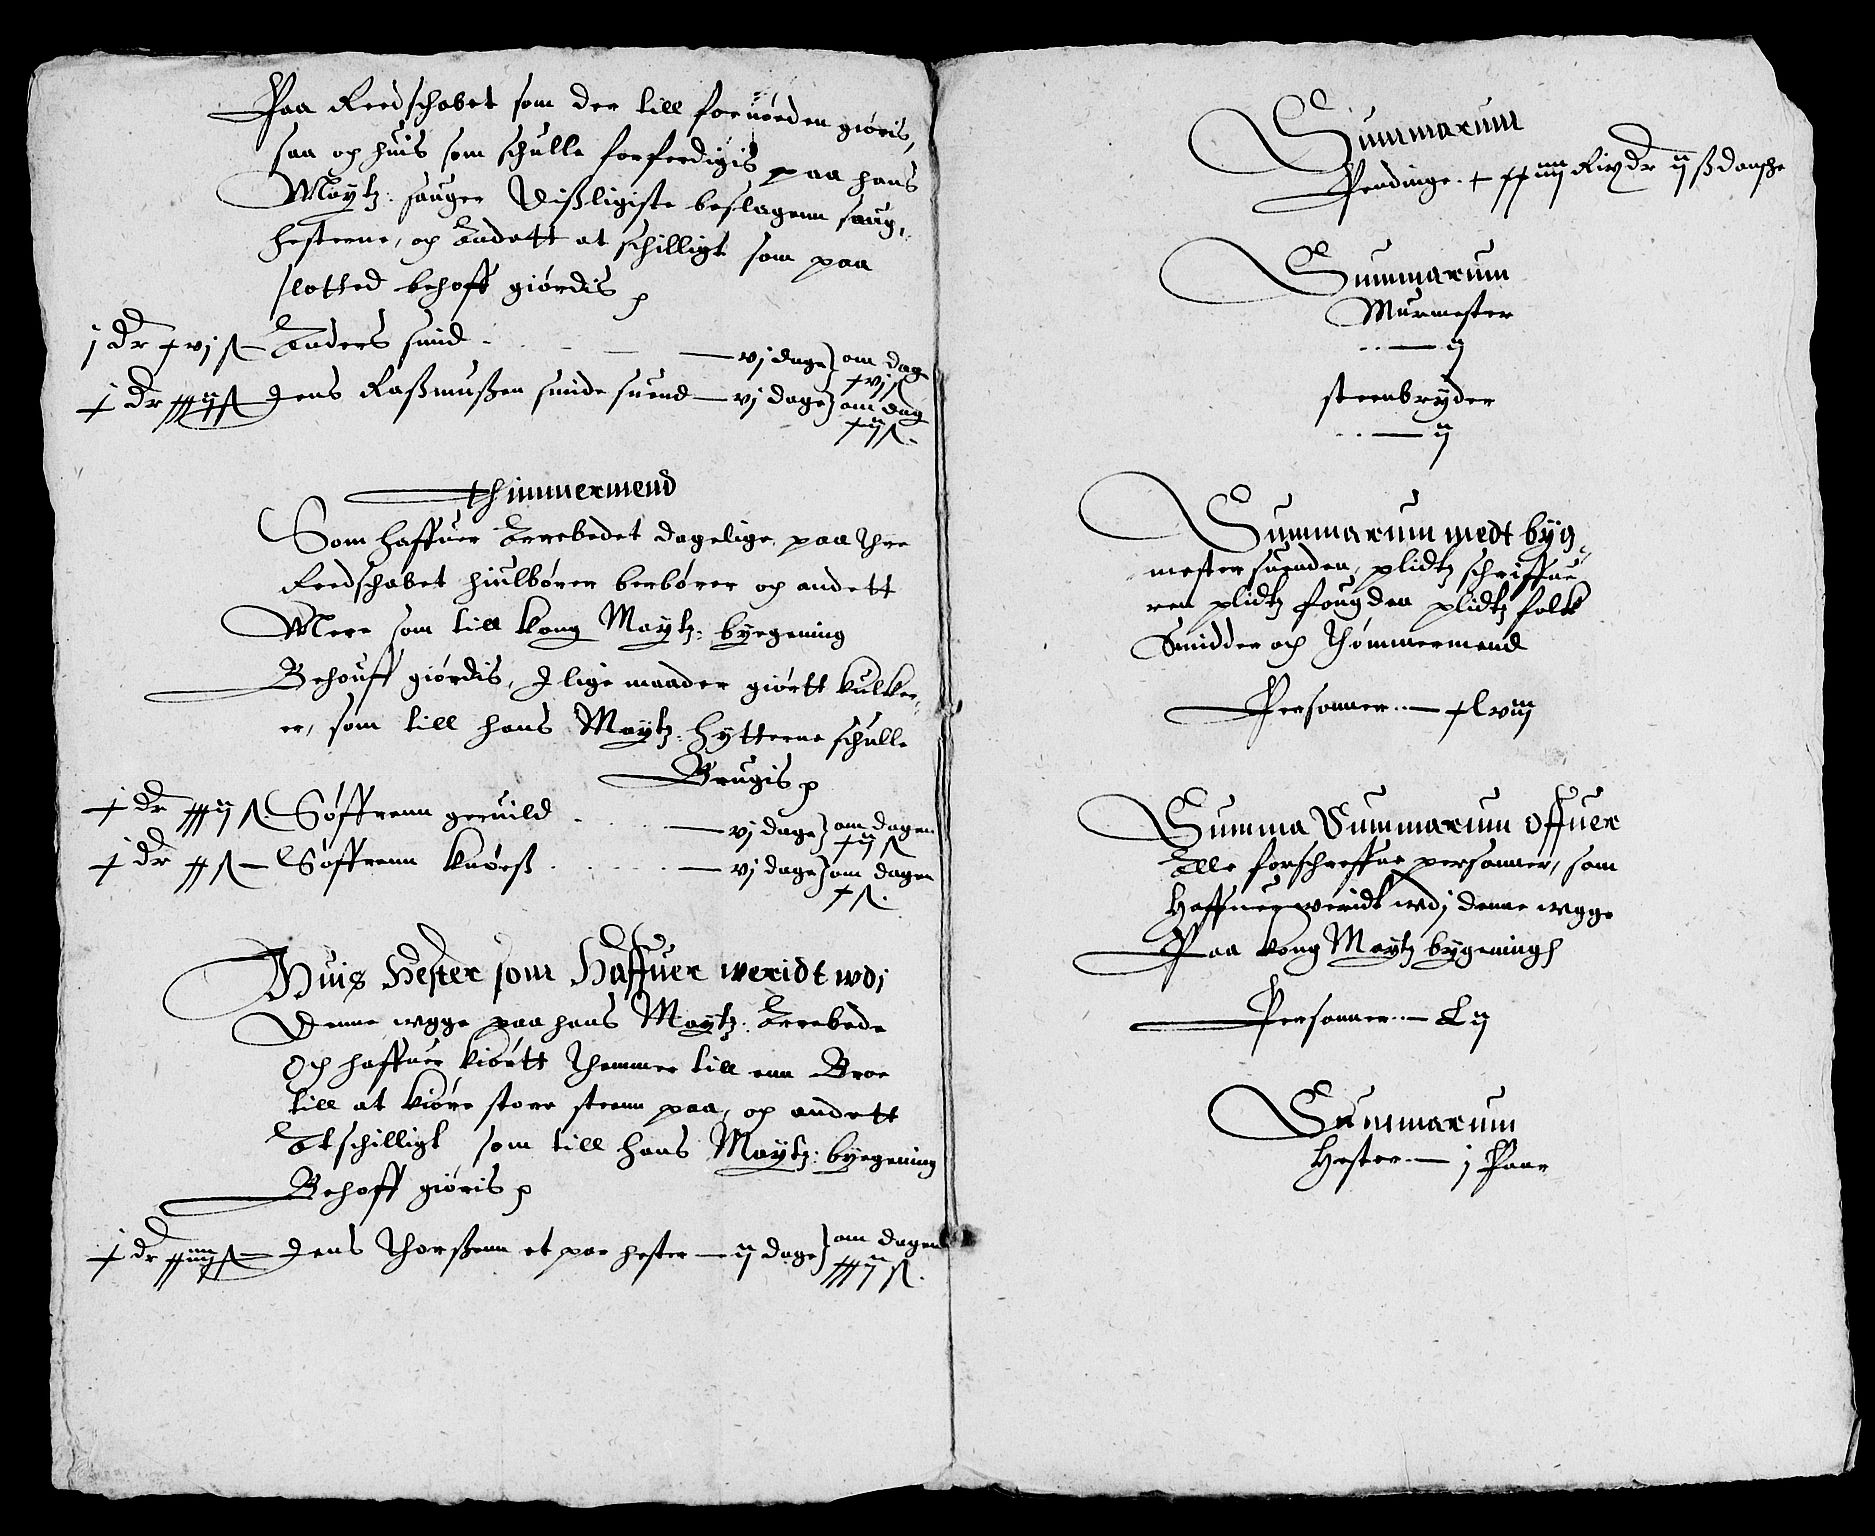 Paa Reedschabet som der till foruorden giøris,
saa och huis som schulle forferdigis paa hans
Maytz: sauger Dißligiste beslagenn saug,,
hesterne, och Andett at schilligt som paa
slotted behoff giørdis p
j dr xvj ß Anders smid — vj dage} om dag
xvj ß
j dr xxxij ß Jens Raßmußen smide suend — vj dage} om dag
xij ß.
Thimmermend
Som haffuer Arrebedet dagelige, paa Thre
Reedschabet hiulbører berbører och andett
Mere som till kong Maytz: byegening
Behouff giørdis, I lige maader giørtt kulker,,
er, som till hans Maytz: hytterne schulle
Brugis p
j dr xxxij ß. Søffrenn geruild — vj dage} om dagen
xij ß
j dr xx ß — Søffrenn knørß — vj dage} om dagen
x ß.
Huis Hester som Haffuer weridt wdj
Denne wgge paa hans Maytz: Arrebede
Och haffuer kiørtt Themmer till enn Broe
till at kiøre store steenn paa, och andett
Atschilligt som till hans Maytz: byegening
Behoff giøris p
j dr xxiiij ß — Jens Thorßenn et par hester — ij dage} om dagen
xxxij ß.
Summarum
Pendinge. x xxiiij Rixdr ij ß danshe
Summarum
Murmester
..— ij
steenbryder
..— ij
Summarum medt byg,,
mester suenden, plidtz schriffue,,
ren plidtz fougden plidtz folck
Smidder och Thømmermend
Personner..— xlviij
Summa Summarum Offuer
Alle forschreffne personner, som
Haffuer weridt wdj denne wgge
Paa kong Maytz bygeningh
Personner..— Lij
Summarum
Hester.— j Paar